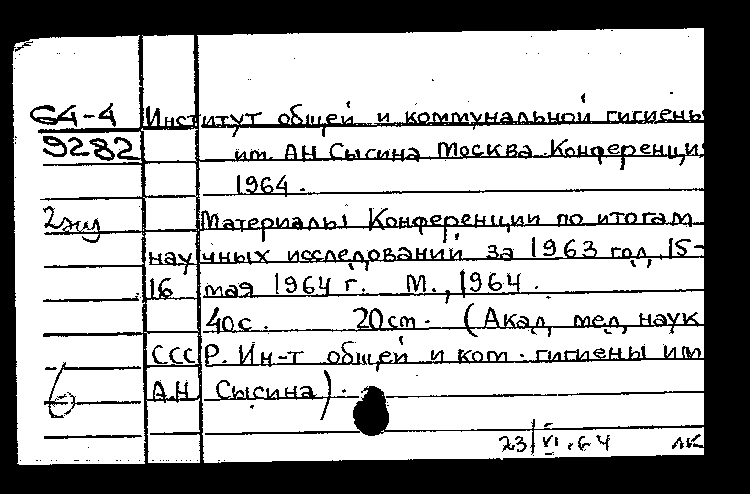 64-4 Институт общей и коммунальной гигиены
9282 им. АН Сысина Москва. Конференци
1964.
2 экз Материалы Конференции по итогам
научных исследований за 1963 год, 15-
16 мая 1964 г. М., 1964.
40 с. 20 cm. (Акад, мед, наук
СССР. Ин-т общей и ком. гигиены им
б А.Н Сысина).
23/VI.64 лк